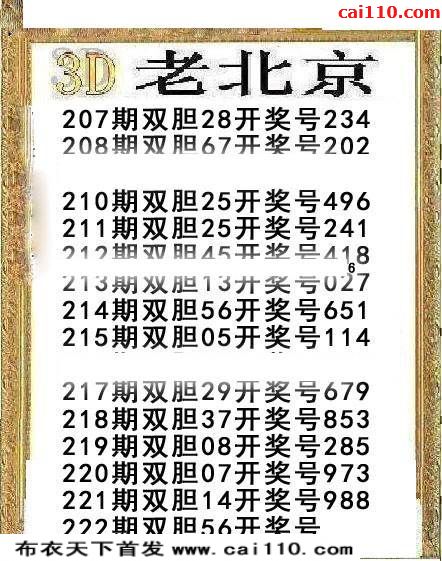 cai110.com
3D 老北京
207期双胆28开奖号234
208期双胆67开奖号202
210期双胆25开奖号496
211期双胆25开奖号241
212期双胆45开奖号418
6
213期双胆13开奖号027
214期双胆56开奖号651
215期双胆05开奖号114
217期双胆29开奖号679
218期双胆37开奖号853
219期双胆08开奖号285
220期双胆07开奖号973
221期双胆14开奖号988
222期双胆56开奖号
布衣天下首发 www.cai110.com